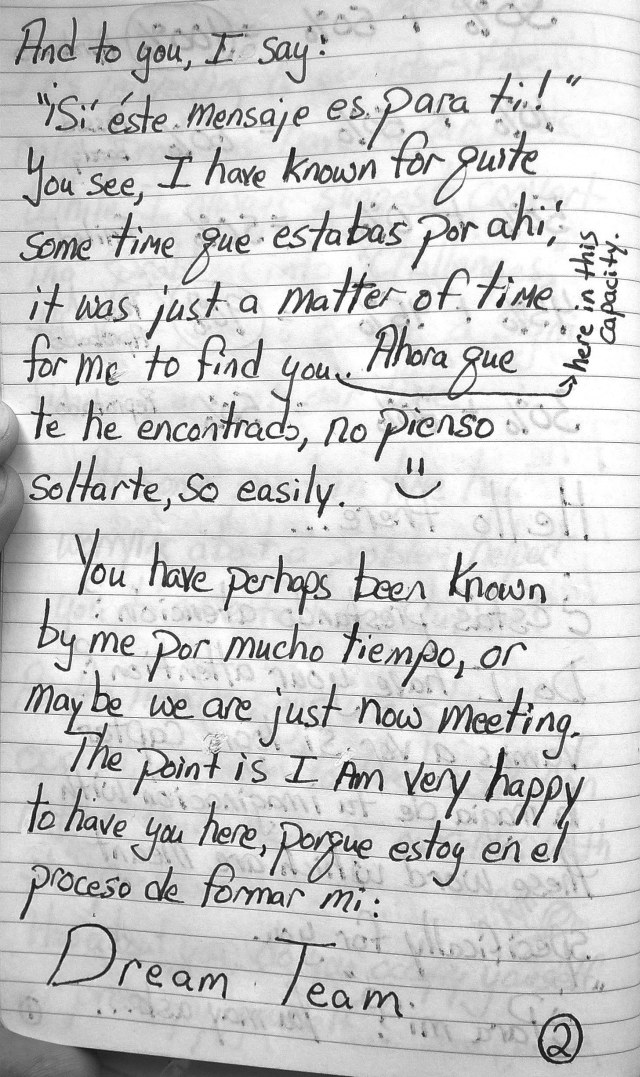 And to you, I say:
"¡Si éste mensaje es para ti!"
You see, I have known for quite
some time que estabas por ahi,
it was just a matter of time
for me to find you. Ahora que
here in this
capacity.
te he encontrado, no pienso
soltarte, so easily.
You have perhaps been known
by me por mucho tiempo, or
maybe we are just now meeting.
The point is I Am very happy
to have you here, porque estoy en el
proceso de formar mi:
Dream Team.
2